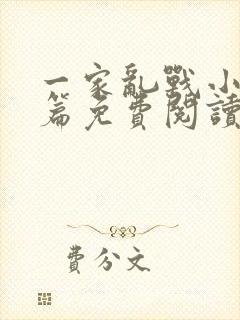 一家亂戰小
篇免費閱讀
費分文